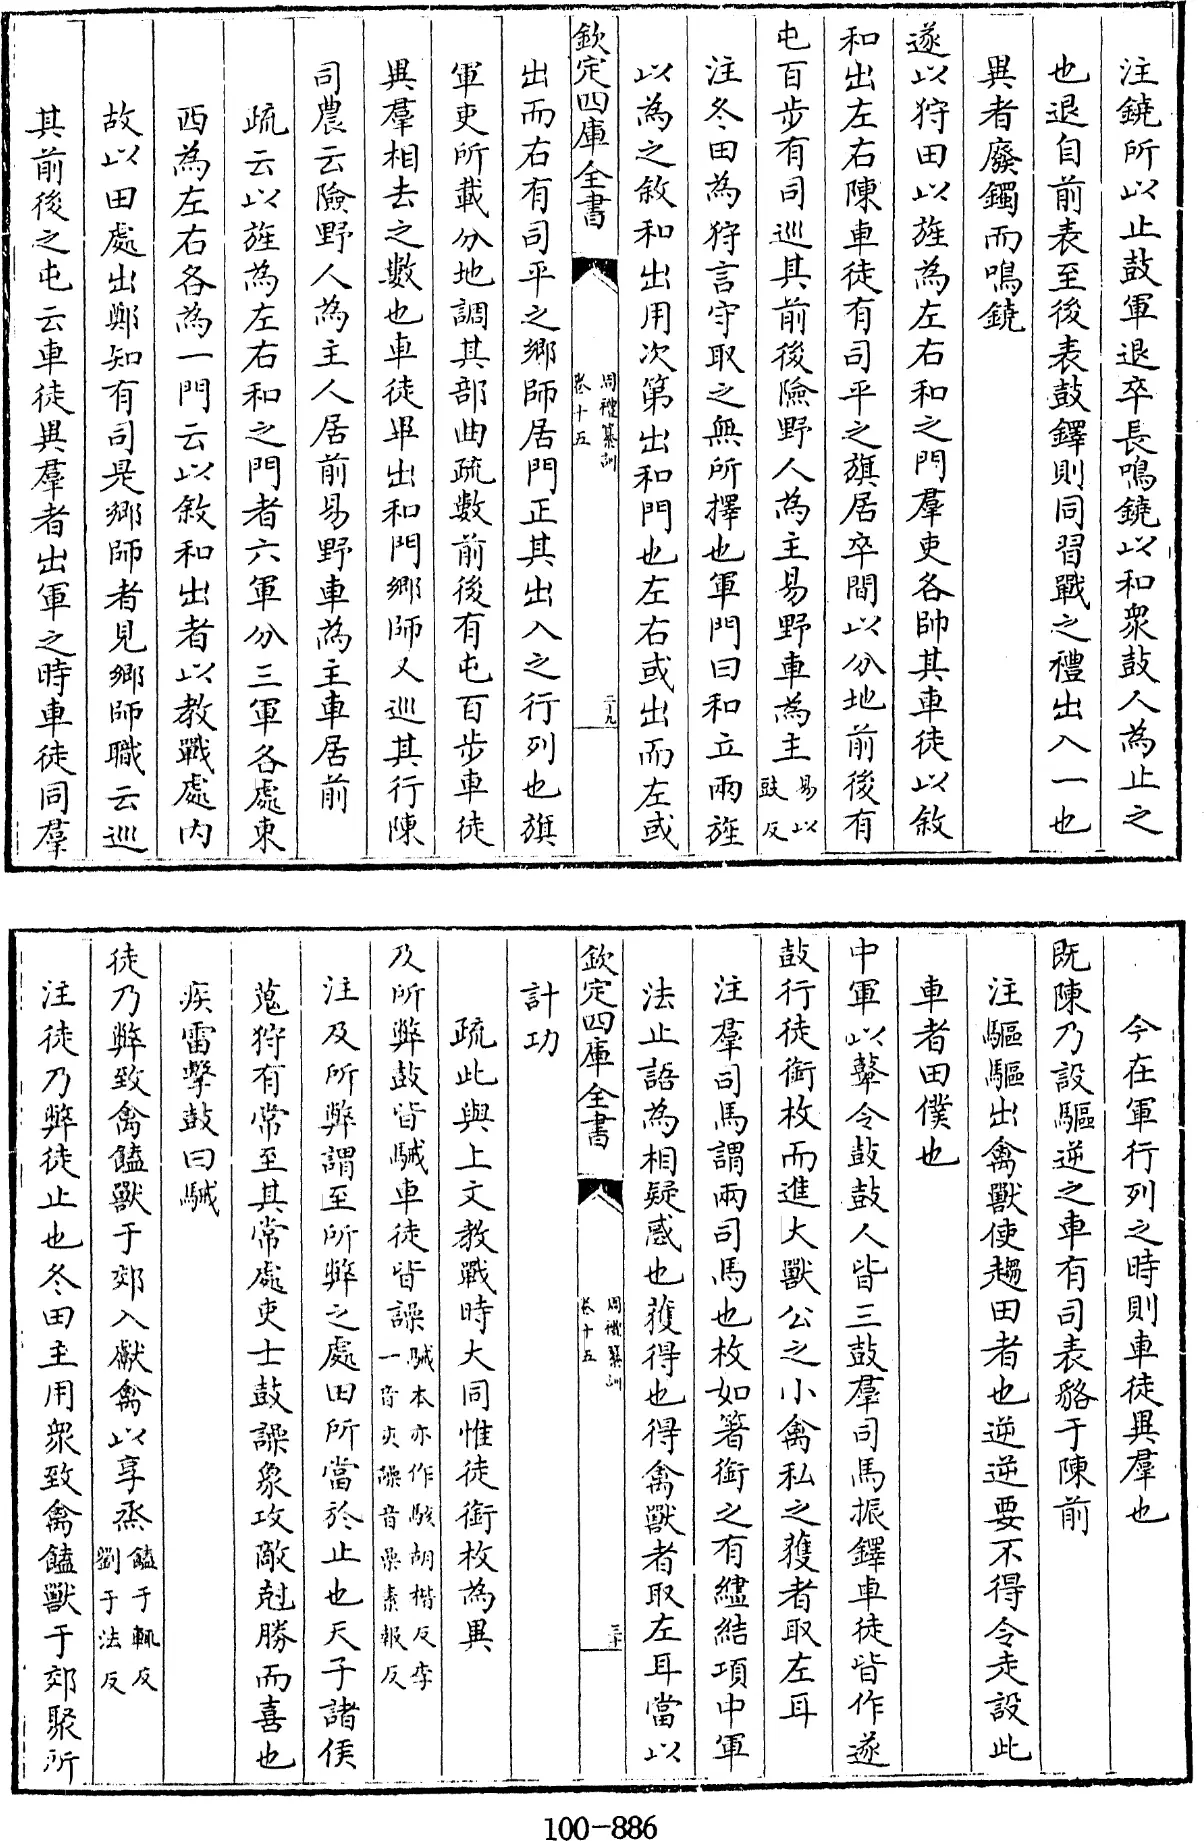 注鐃所以止鼓軍退卒長鳴鐃以和衆鼓人為止之
也退自前表至後表鼓鐸則同習戰之禮出入一也
異者廢鐲而鳴鐃
遂以狩田以旌為左右和之門羣吏各帥其車徒以敘
和出左右陳車徒有司平之旗居卒間以分地前後有
屯百步有司巡其前後險野人為主易野車為主易以豉反
注冬田為狩言守取之無所擇也軍門曰和立兩旌
以為之敘和出用次第出和門也左右或出而左或
欽定四庫全書
周禮纂訓
卷十五
二十九
出而右有司平之鄉師居門正其出入之行列也旗
軍吏所載分地調其部曲疏數前後有屯百步車徒
異羣相去之數也車徒畢出和門鄉師又巡其行陳
司農云險野人為主人居前易野車為主車居前
疏云以旌為左右和之門者六軍分三軍各處東
西為左右各為一門云以敘和出者以教戰處内
故以田處出鄭知有司是鄉師者見鄉師職云巡
其前後之屯云車徒異羣者出軍之時車徒同羣
今在軍行列之時則車徒異羣也
既陳乃設驅逆之車有司表貉于陳前
注驅驅出禽獸使趨田者也逆逆要不得令走設此
車者田僕也
中軍以鼙令鼓鼓人皆三鼓羣司馬振鐸車徒皆作遂
鼓行徒銜枚而進大獸公之小禽私之獲者取左耳
注羣司馬謂兩司馬也枚如箸銜之有繣結項中軍
法止語為相疑惑也獲得也得禽獸者取左耳當以
欽定四庫全書
周禮纂訓
卷十五
三十
計功
疏此與上文教戰時大同惟徒銜枚為異
及所弊鼓皆駴車徒皆譟駴本亦作駭胡楷反李一音亥譟音喿素報反
注及所弊謂至所弊之處田所當於止也天子諸侯
蒐狩有常至其常處吏士鼓譟象攻敵剋勝而喜也
疾雷擊鼓曰駴
徒乃弊致禽饁獸于郊入獻禽以享烝饁于輒反劉于法反
注徒乃弊徒止也冬田主用衆致禽饁獸于郊聚所
100-886